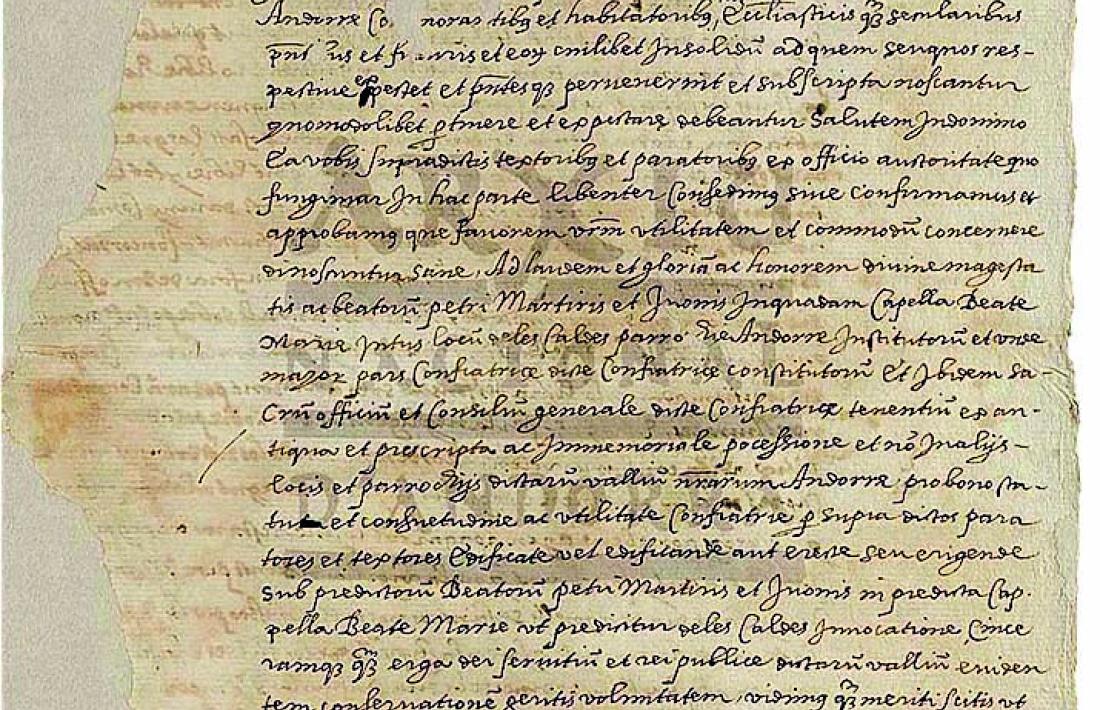 Andorre Co noras tibq et habitatoribq, Eccliasticis q̃z secularibus
pnt us et fu uris et eoꝝ cuilibet Insolidũ ad quem seu quos res-
pective spectet et p̃ntesqz pervenerint et subscripta noscantur
quomodolibet ꝑtinere et expectare debeantur Salutem Indomino
Ea vobis supradictis textoribq et paratoribq ex officio auctoritate quo
fungimur In hac parte libenter Consedimq sive confirmamus et
approbamq que favorem vr̃m vtilitatem et commodũ concernere
dinoscuntur sane, Ad laudem et gloriã ac honorem divine magesta
tis ac beatorũ petri Martiris et Juonis Inquadam Capella Beate
Marie Intus locũ deles Caldes parro Andorre Institutorũ et
mayor pars Confiatrice dicte Confiatrice constitutorũ Et Ibidem sa-
Crũ officiũ et Consiliũ generale dicte Confiatrice tenentiũ ex an-
tiqua et prescripta ac Immemoriale pocessione et nõ In alijs-
locis et parrochijs dictarũ valliũ nr̃arum Andorre pro bono sta-
tu et consuetudine ac vtilitate Confiatrie ꝑ supra dictos para
tores et textores Edificate vel edificande aut erecte seu erigende
sub predictorũ Beatorũ petri Martiris et Juonis in predicta Cap-
pella Beate Marie vt predicitur deles Caldes Innocatione Cince
ramqz q̃z erga dei servitiũ et rei publice dictarũ valliũ eviden
tem conservationẽ geritis voluntatem, vidimq q̃z meriti scitis vt
ARXIU
NACIONAL
D'ANDORRA